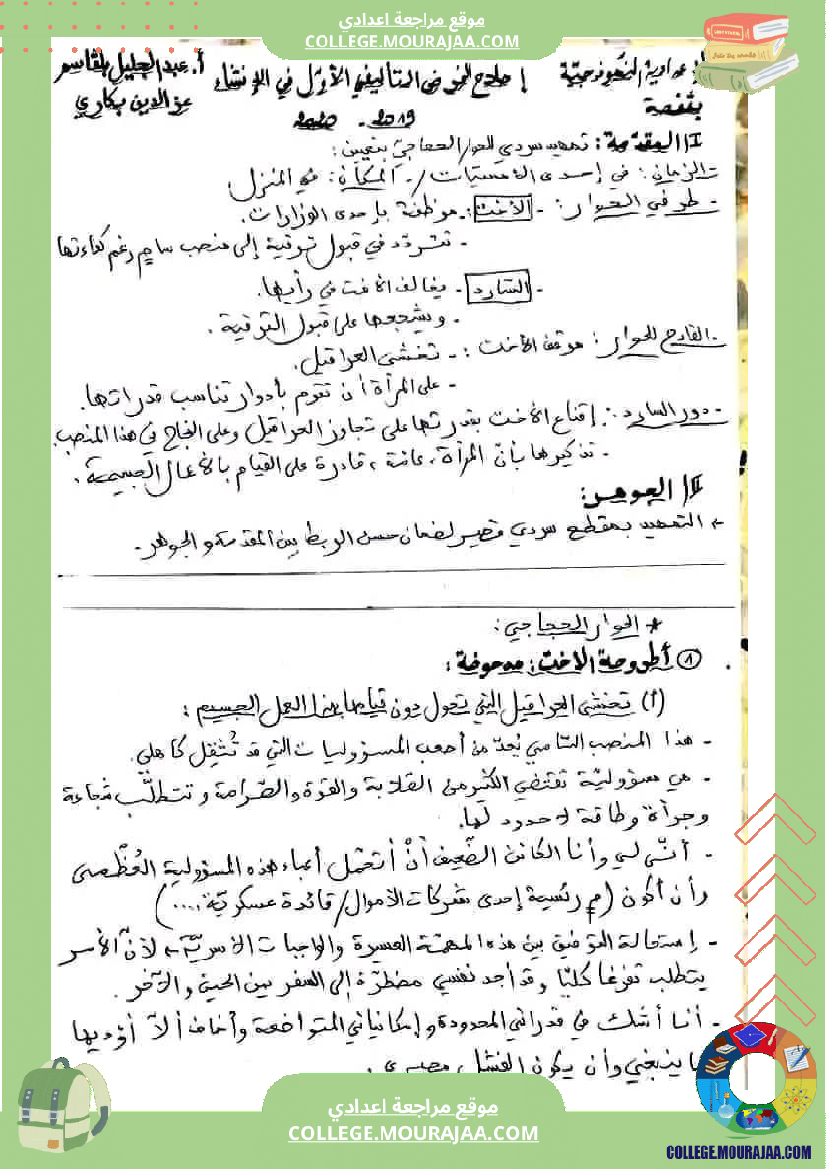 موقع مراجعة اعدادي
COLLEGE.MOURAJAA.COM
الإعدادية النموذجية إصلاح الفرض التأليفي الأول في الإنشاء أ. عبد الجليل بلقاسم
بقفصة 2019 - 2020 عز الدين بكاري
I/ المقدمة: تمهيد سردي للحوار الحجاجي بتعيين:
- الزمان: في إحدى الأمسيات /- المكان: في المنزل
- طرفي الحوار: - الأخت: - موظفة بإحدى الوزارات.
- تتردد في قبول ترقية إلى منصب سام رغم كفاءتها
- السارد - يخالف الأخت في رأيها.
- ويشجعها على قبول الترقية.
- القادح للحوار: موقف الأخت: - تخشى العراقيل.
- على المرأة أن تقوم بأدوار تناسب قدراتها.
- دور السارد: إقناع الأخت بقدرتها على تجاوز العراقيل وعلى النجاح في هذا المنصب
- تذكيرها بأن المرأة، عامة، قادرة على القيام بالأعمال الجسيمة.
II/ الجوهر:
التمهيد بمقطع سردي قصير لضمان حسن الربط بين المقدمة والجوهر.
* الحوار الحجاجي:
① أطروحة الأخت: مدحوضة:
(أ) تخشى العراقيل التي تحول دون قيامها بهذا العمل الجسيم:
- هذا المنصب السامي يُعدّ من أصعب المسؤوليات التي قد تُثقِل كاهلي.
- هي مسؤوليّة تقتضي الكثير من الصّلابة والقوة والصّرامة وتتطلّب شجاعة
وجرأة وطاقة لا حدود لها.
- أنّى لي وأنا الكائن الضّعيف أنْ أتحمّل أعباء هذه المسؤولية العُظمى
وأن أكون (م رئيسة إحدى شركات الأموال/ قائدة عسكريّة....)
- إستحالة التوفيق بين هذه المهمّة العسيرة والواجبات الأسريّة، لأنّ الأمر
يتطلب تفرّغا كليّا وقد أجد نفسي مضطرّة إلى السفر بين الحين والآخر.
- أنا أشك في قدراتي المحدودة وإمكانياتي المتواضعة وأخاف ألاّ أؤديها
كما ينبغي وأن يكون الفشل مصيري.
موقع مراجعة اعدادي
COLLEGE.MOURAJAA.COM
COLLEGE.MOURAJAA.COM